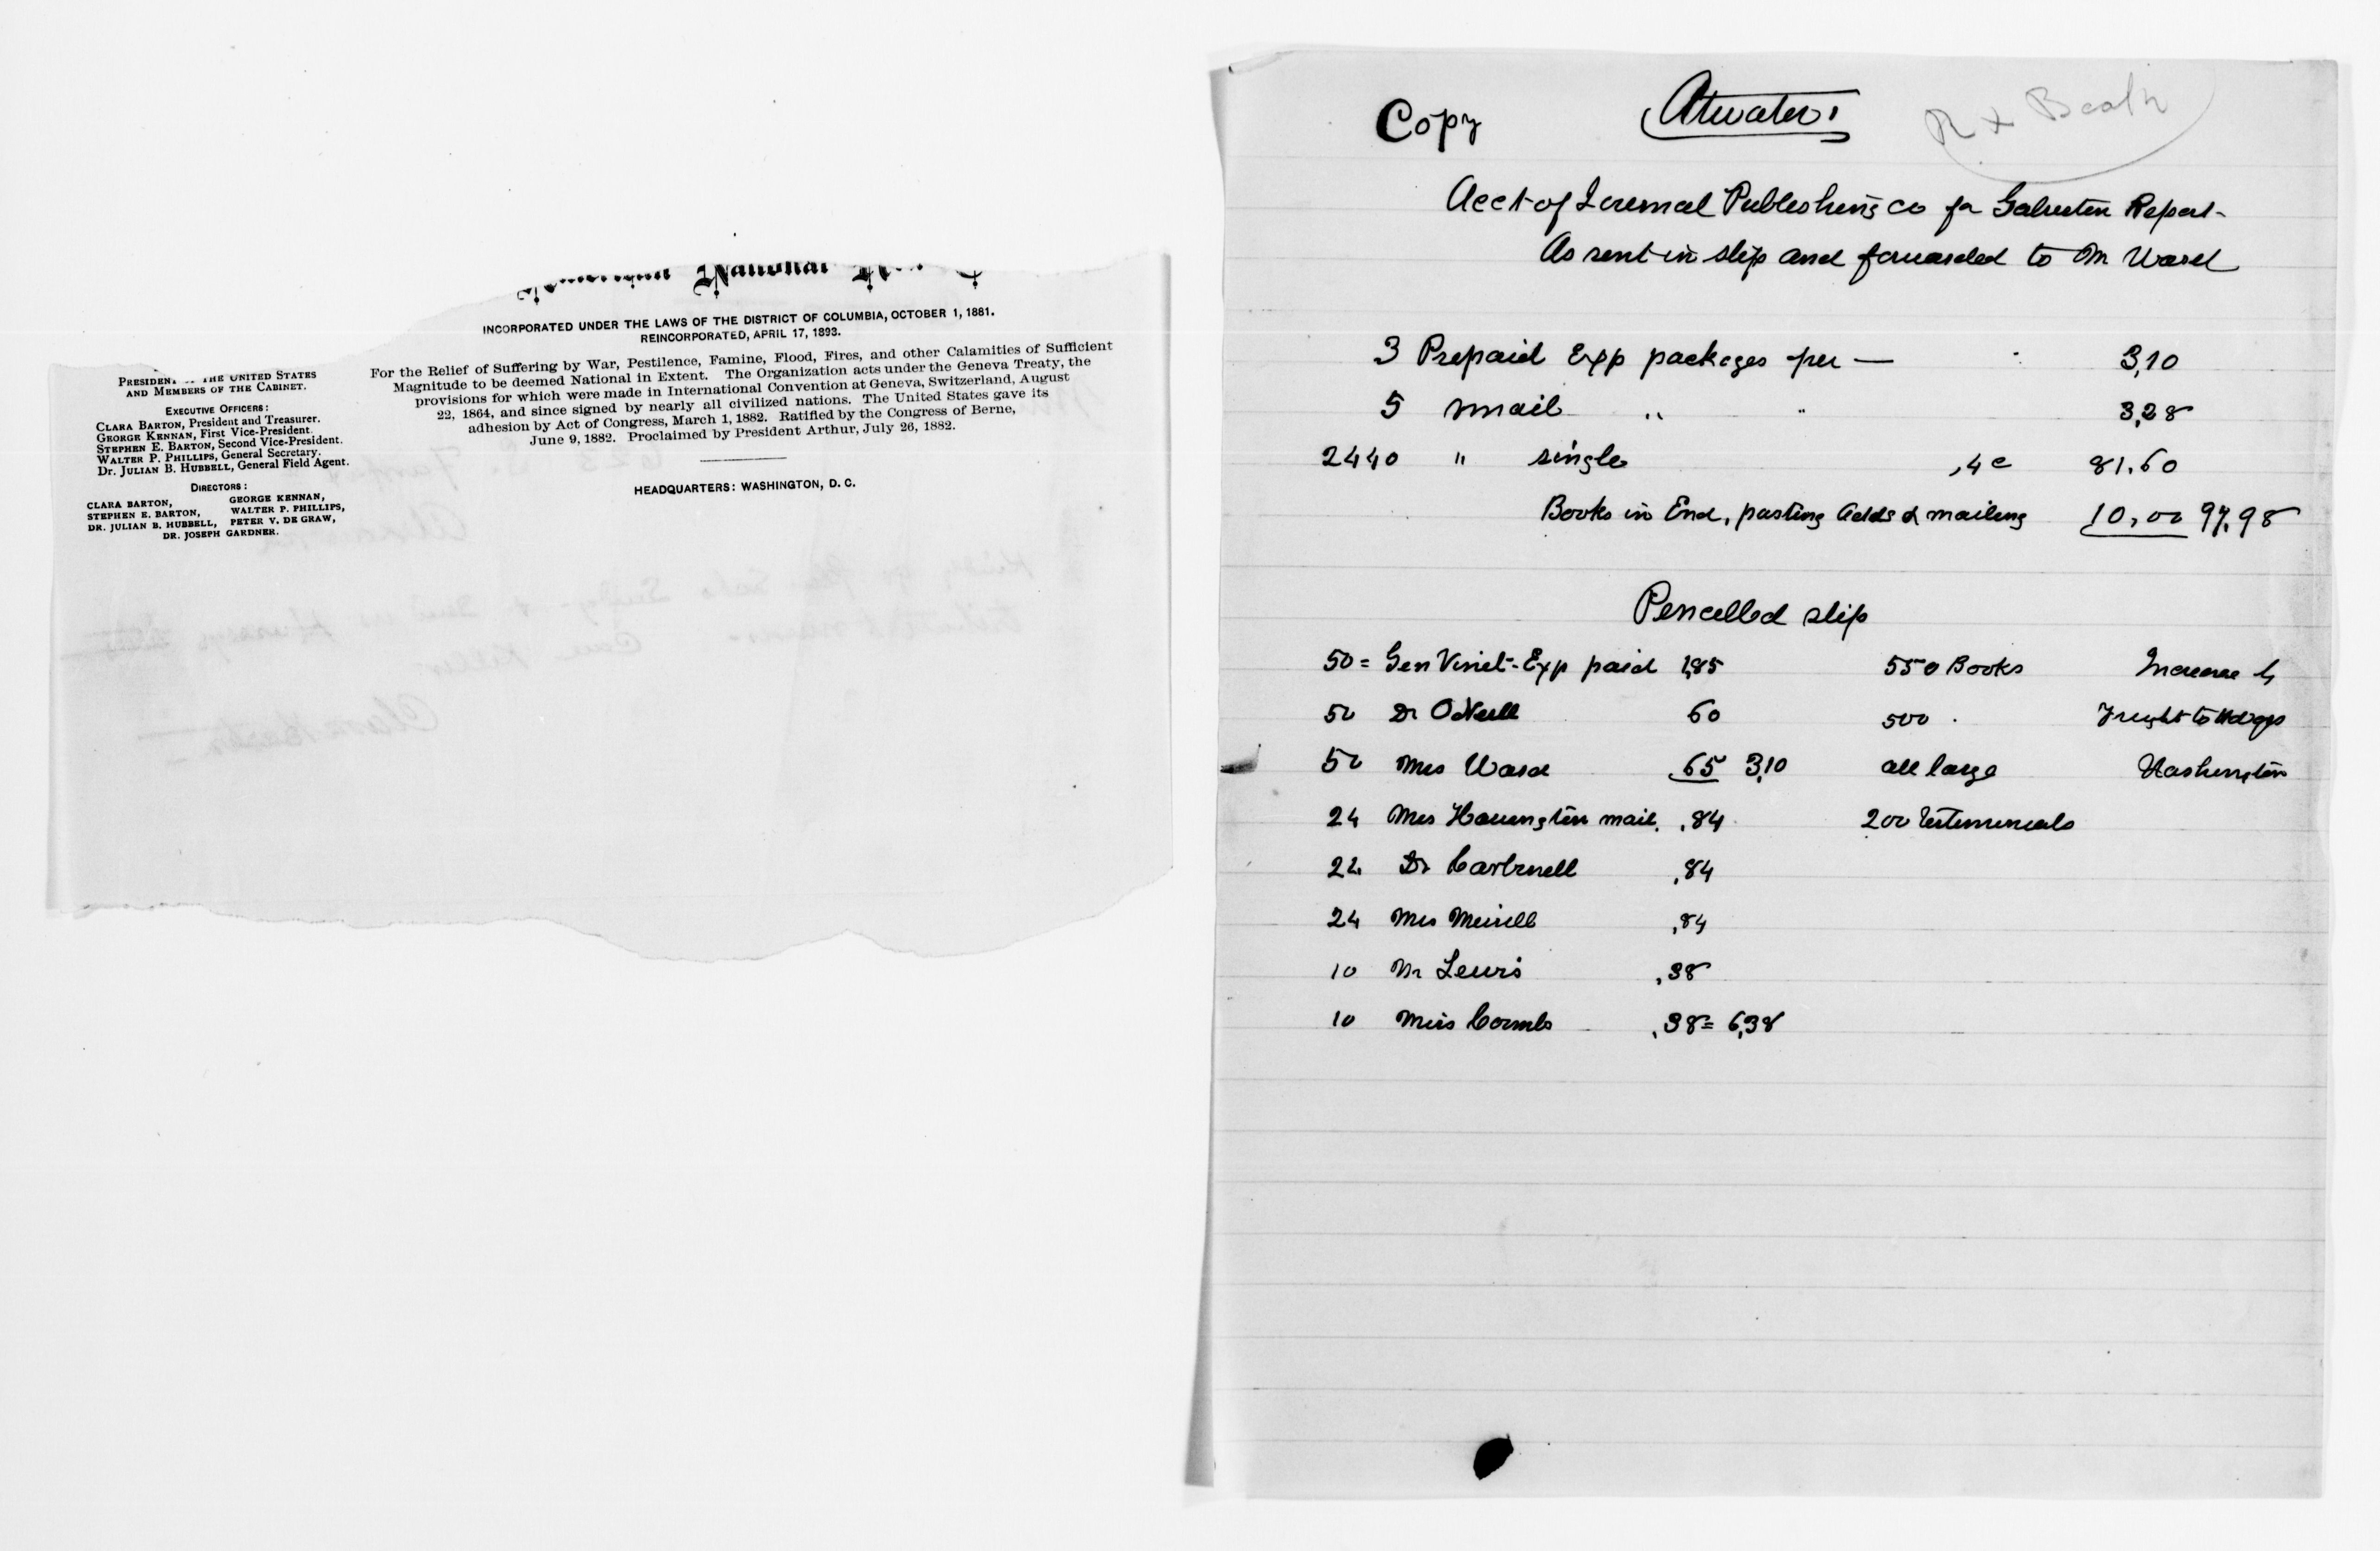 American National
INCORPORATED UNDER THE LAWS OF THE DISTRICT OF COLUMBIA, OCTOBER 1, 1881.
REINCORPORATED, APRIL 17, 1893.
For the Relief of Suffering by War, Pestilence, Famine, Flood, Fires, and other Calamities of Sufficient
Magnitude to be deemed National in Extent. The Organization acts under the Geneva Treaty, the
provisions for which were made in International Convention at Geneva, Switzerland, August
22, 1864, and since signed by nearly all civilized nations. The United States gave its
adhesion by Act of Congress, March 1, 1882. Ratified by the Congress of Berne,
June 9, 1882. Proclaimed by President Arthur, July 26, 1882.
HEADQUARTERS: WASHINGTON, D. C.
PRESIDENT THE UNITED STATES
AND MEMBERS OF THE CABINET.
EXECUTIVE OFFICERS:
CLARA BARTON, President and Treasurer.
GEORGE KENNAN, First Vice-President.
STEPHEN E. BARTON, Second Vice-President.
WALTER P. PHILLIPS, General Secretary.
Dr. JULIAN B. HUBBELL, General Field Agent.
DIRECTORS:
CLARA BARTON, GEORGE KENNAN,
STEPHEN E. BARTON, WALTER P. PHILLIPS,
DR. JULIAN B. HUBBELL, PETER V. DE GRAW,
DR. JOSEPH GARDNER.
Copy Atwater.
Acct of Journal Publishing co for Galveston Report-
As sent in slip and forwarded to Mr Ward
3 Prepaid Exp packages per — 3,10
5 mail " " 3,28
2440 " single ,4c 81.60
Books in End, pasting adds & mailing 10,00 97,98
Pencelled slip
50 = Gen Vinet - Exp paid 1,85 550 Books Increase by
50 Dr ONeill 60 500 . Freight to Hdqqs
50 Mrs Ward 65 3,10 all large Washington
24 Mrs Harrington mail. ,84 200 Testimonials
22 Dr Carbnell ,84
24 Mrs Merrell ,84
10 Mr Lewis ,38
10 Miss Coombs ,38 = 6,38